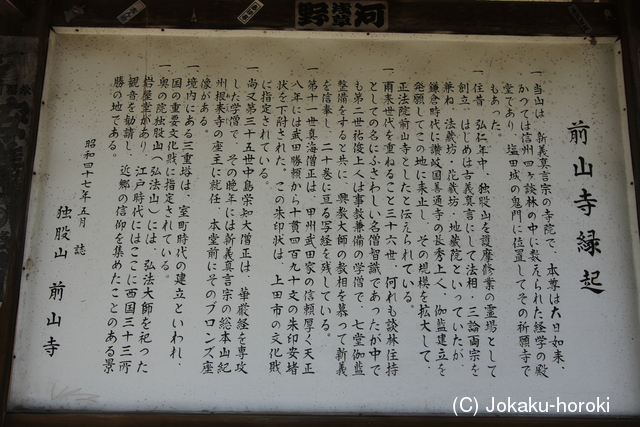 野浅草河
前山寺縁起
一、当山は、新義真言宗の寺院で、本尊は大日如来、
かつては信州四ヶ談林の中に数えられた経学の殿
堂であり、塩田城の鬼門に位置してその祈願寺で
もあった。
一、往昔、弘仁年中、独股山を護摩修業の霊場として
創立、はじめは古義真言にして法相・三論両宗を
兼ね、法蔵坊・花蔵坊・地蔵院といっていたが、
鎌倉時代に讃岐国善通寺の長秀上人、伽藍建立を
発願してこの地に来止し、その規模を拡大して、
正法院前山寺としたと伝えられている。
一、爾来世代を重ねること三十六世、何れも談林住持
としての名にふさわしい名僧智識であったが中で
も第二世祐俊上人は事教兼備の学僧で、七堂伽藍
整備をすると共に、興教大師の教相を慕って新義
を信奉し、二十巻に亘る写経を残している。
一、第十一世真海僧正は、甲州武田家の信頼厚く天正
八年には武田勝頼から十貫四百九十文の朱印安堵
状を下附された。この朱印状は、上田市の文化財
に指定されている。
一、尚又第三十五世中島崇知大僧正は、華厳経を専攻
した学僧で、その晩年には新義真言宗の総本山紀
州根来寺の座主に就任、本堂前にそのブロンズ座
像がある。
一、境内にある三重塔は、室町時代の建立といわれ、
国の重要文化財に指定されている。
一、奥の院独股山(弘法山)には、弘法大師を祀った
岩屋堂があり、江戸時代にはここに西国三十三所
観音を勧請し、近郷の信仰を集めたことのある景
勝の地である。
昭和四十七年五月 誌
独股山 前山寺
(C) Jokaku-horoki